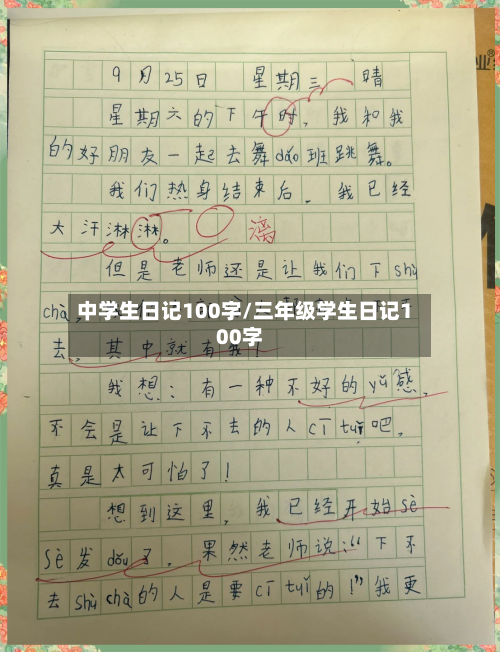 9月25日 星期三 晴
星期六的下午时,我和我
的好朋友一起去舞dǎo班跳舞。
我们热身结束后,我已经
大汗淋淋。 漓
但是老师还是让我们下shù
chà,
中学生日记100字/三年级学生日记1
00字
去,其中就有我!
我想:有一种不好的yǔ感,
不会是让下不去的人cī tuǐ吧,
真是太可怕了!
想到这里,我已经开始sè
sè发dǒu了,果然老师说:“下不
去shù chà的人是要cī tuǐ的!”我更